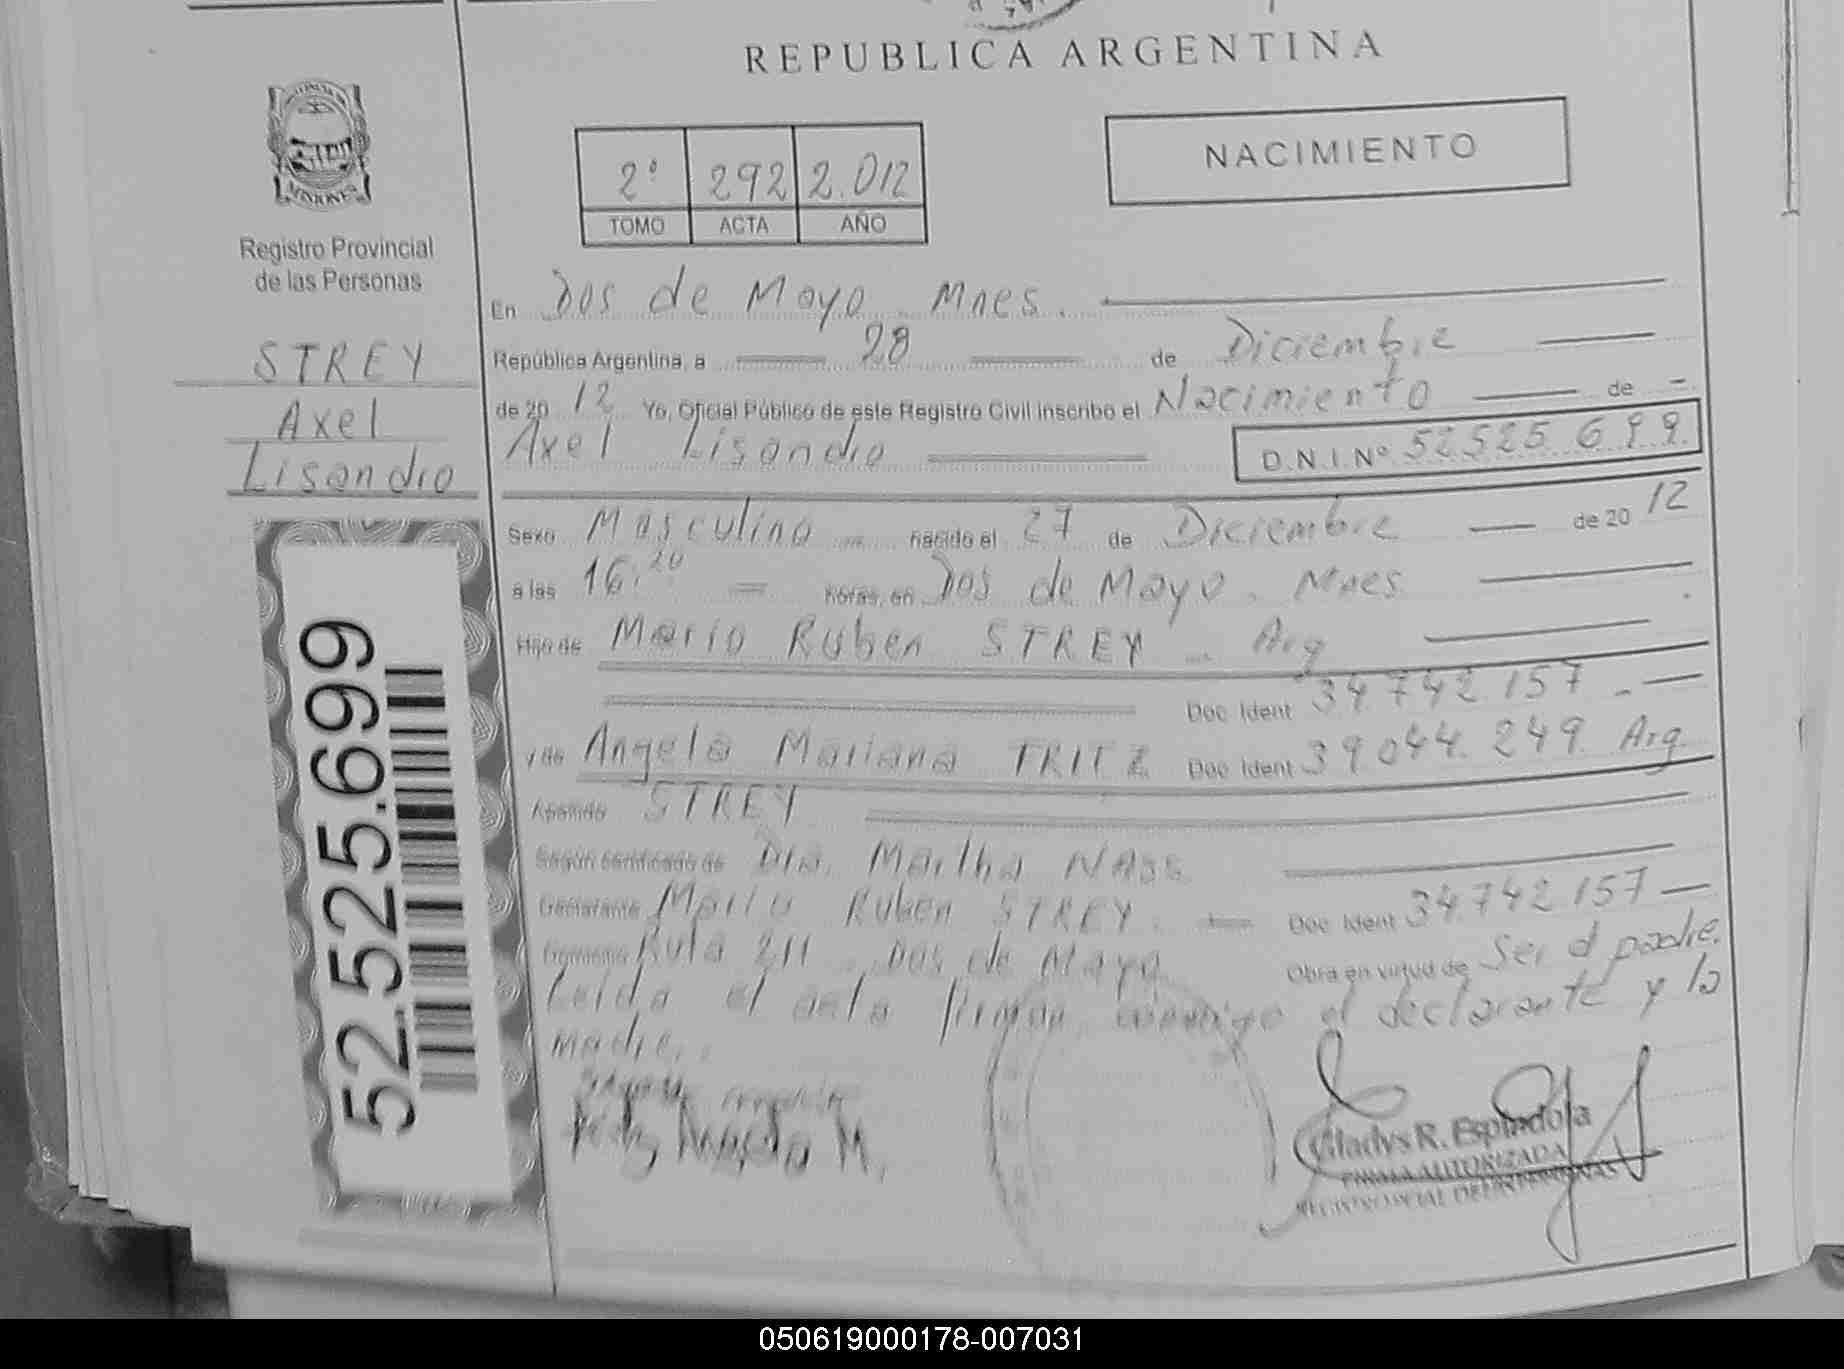 REPUBLICA ARGENTINA
MISIONES
Registro Provincial
de las Personas
STREY
Axel
Lisandro
52.525.699
2º 292 2.012
TOMO ACTA AÑO
NACIMIENTO
En Dos de Mayo. Mnes.
República Argentina, a 28 de Diciembre
de 20 12 Yo, Oficial Público de este Registro Civil inscribo el Nacimiento de
Axel Lisandro D.N.I.Nº 52525699
Sexo Masculino nacido el 27 de Diciembre de 20 12
a las 16:20 horas, en Dos de Mayo. Mnes.
Hijo de Mario Ruben STREY Arg
Doc Ident 34742157
y de Angela Mariana TRITZ Doc Ident 39.044.249 Arg
Apellido STREY
Según certificado de Dra. Martha Nass
Declarante Mario Ruben STREY. Doc Ident 34742157
Domicilio Ruta 211 Dos de Mayo Obra en virtud de Ser el padre.
Leída el acta firman conmigo el declarante y la
madre.
Angela M.
Gladys R. Espindola
FIRMA AUTORIZADA
050619000178-007031